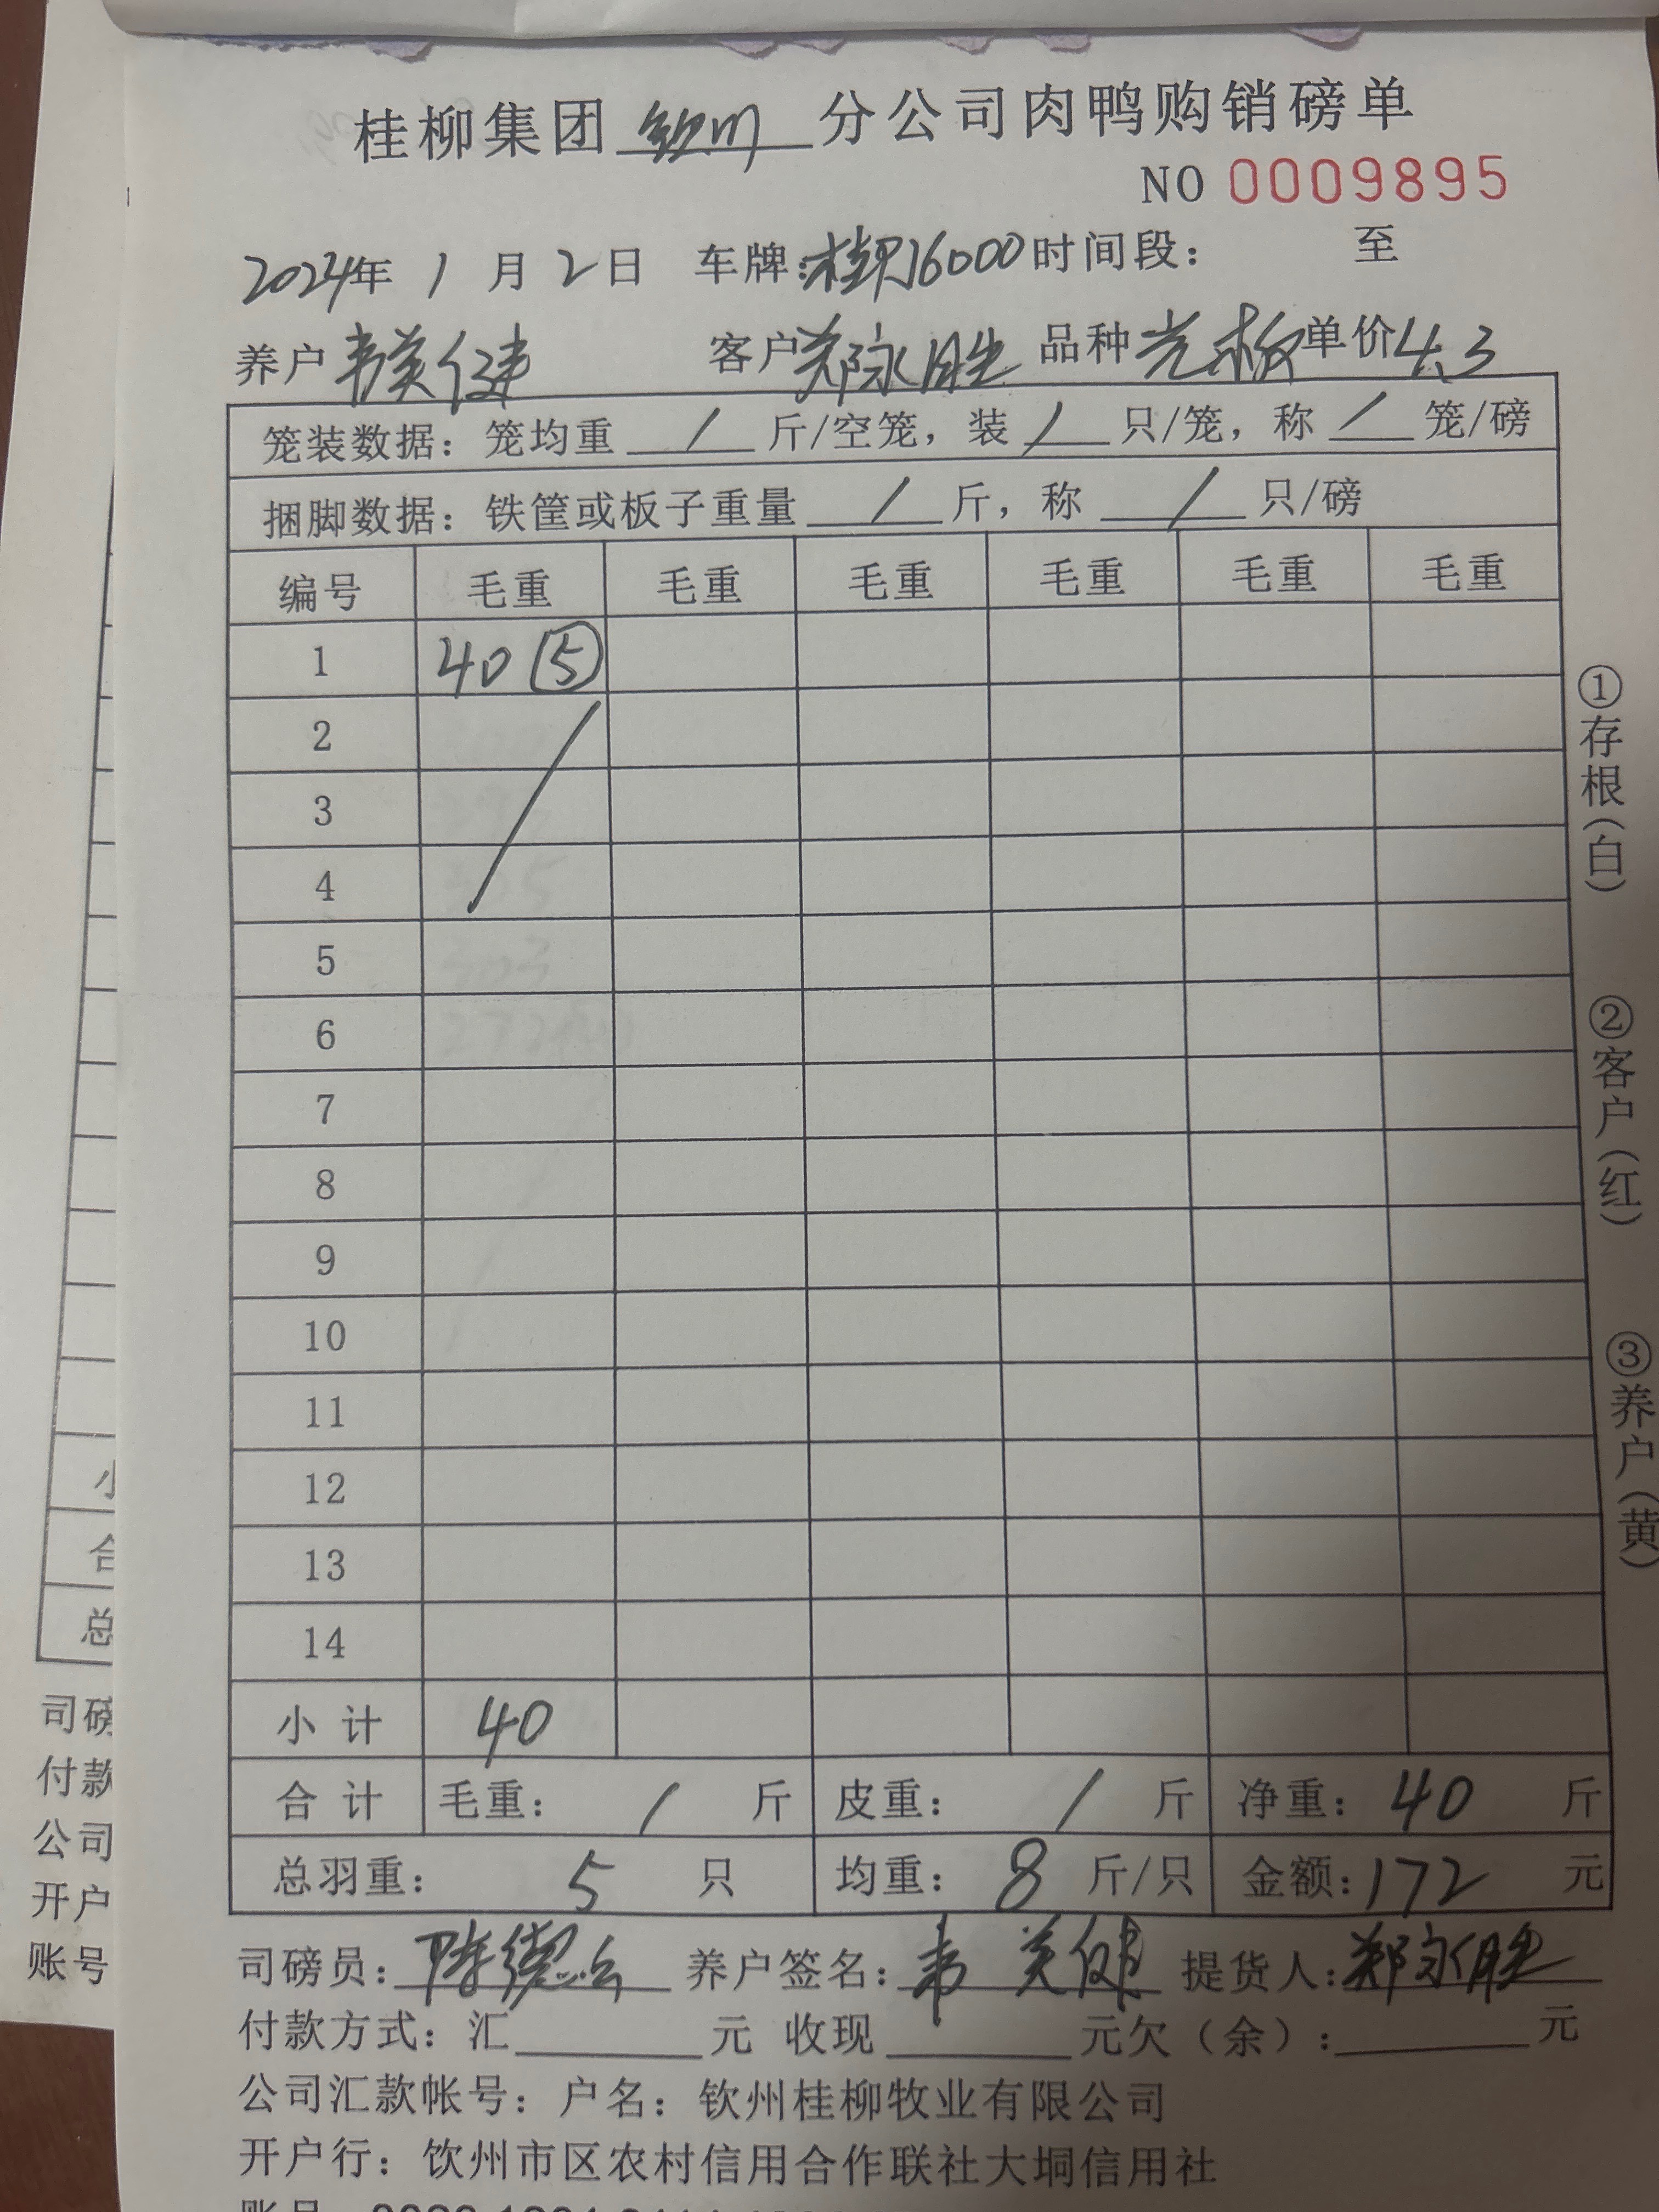 桂柳集团 钦州 分公司肉鸭购销磅单
NO 0009895
2024年 1 月 2 日 车牌:桂 16000 时间段: 至
养户 韦英健 客户 郑永胜 品种 单价 4.3
笼装数据: 笼均重 / 斤/空笼, 装 / 只/笼, 称 / 笼/磅
捆脚数据: 铁筐或板子重量 / 斤, 称 / 只/磅
编号 毛重 毛重 毛重 毛重 毛重 毛重
1 40 ⑤
2
3
4
5
6
7
8
9
10
11
12
13
14
小 计 40
合 计 毛重: / 斤 皮重: / 斤 净重: 40 斤
总羽重: 5 只 均重: 8 斤/只 金额: 172 元
司磅员: 陈德 养户签名: 韦英健 提货人: 郑永胜
付款方式: 汇 元 收现 元欠(余): 元
公司汇款帐号: 户名: 钦州桂柳牧业有限公司
开户行: 钦州市区农村信用合作联社大垌信用社
①存根(白)
②客户(红)
③养户(黄)
小
合
总
司磅
付款
公司
开户
账号